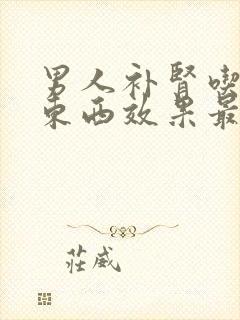 男人补肾喫
东西效果最
莊威